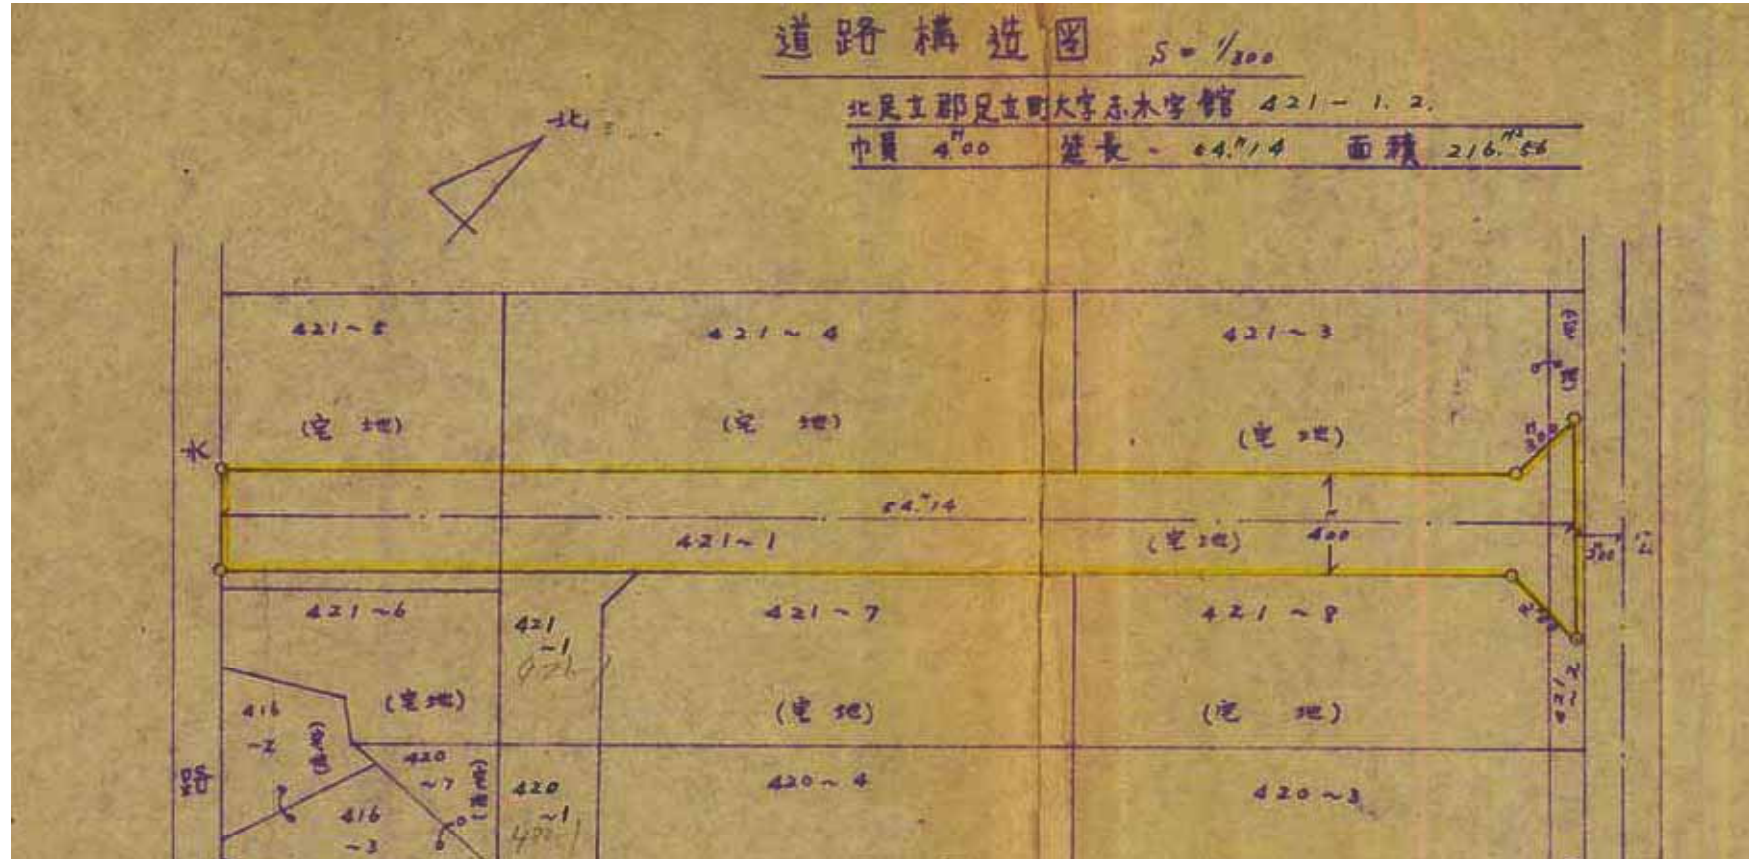 道路構造図 S=1/300
北足立郡足立町大字志木字館 421-1.2.
巾員 4.M00 延長- 54.M14 面積 216.M256
北
421~5
421~4
421~3
(宅地)
(宅地)
(宅地)
水
54.M14
421~1
(宅地)
4.00
421~6
421~7
421~8
421
~1
421~2
(宅地)
(宅地)
(宅地)
416
~2
420
~7
420
~1
420~4
420~3
路
416
~3